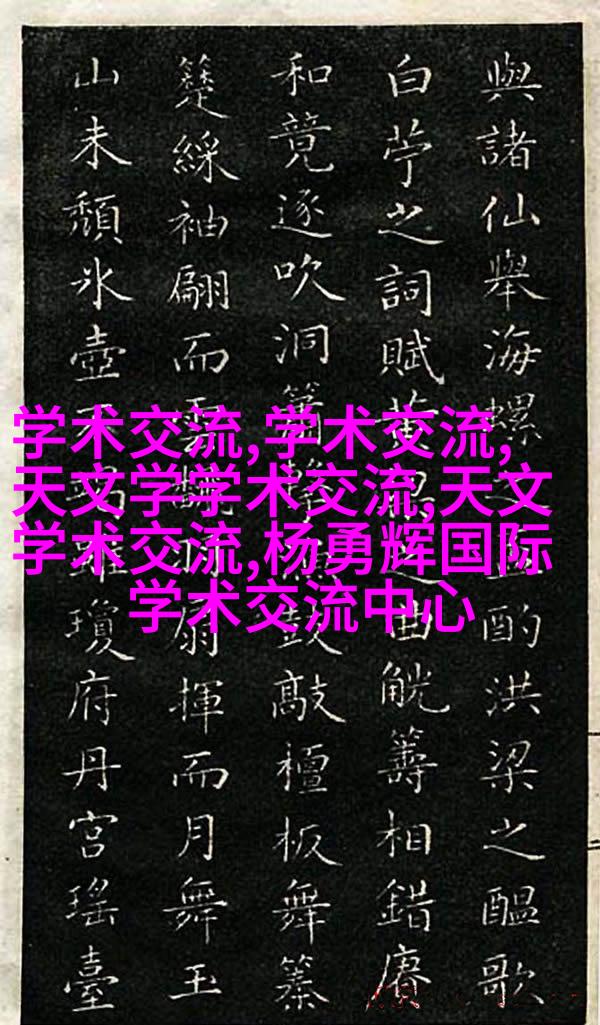 学术交流,学术交流,
天文学学术交流,天文
学术交流,杨勇辉国际
学术交流中心
與諸仙舉海螺之酌洪梁之醖歌
白苧之詞賦黃之曲觥籌相錯賡
和竟逐吹洞簫鼓敲檀板舞
綵袖翩而雲扇揮而月舞玉
山未頹冰壺雖瓊府丹宮瑤臺